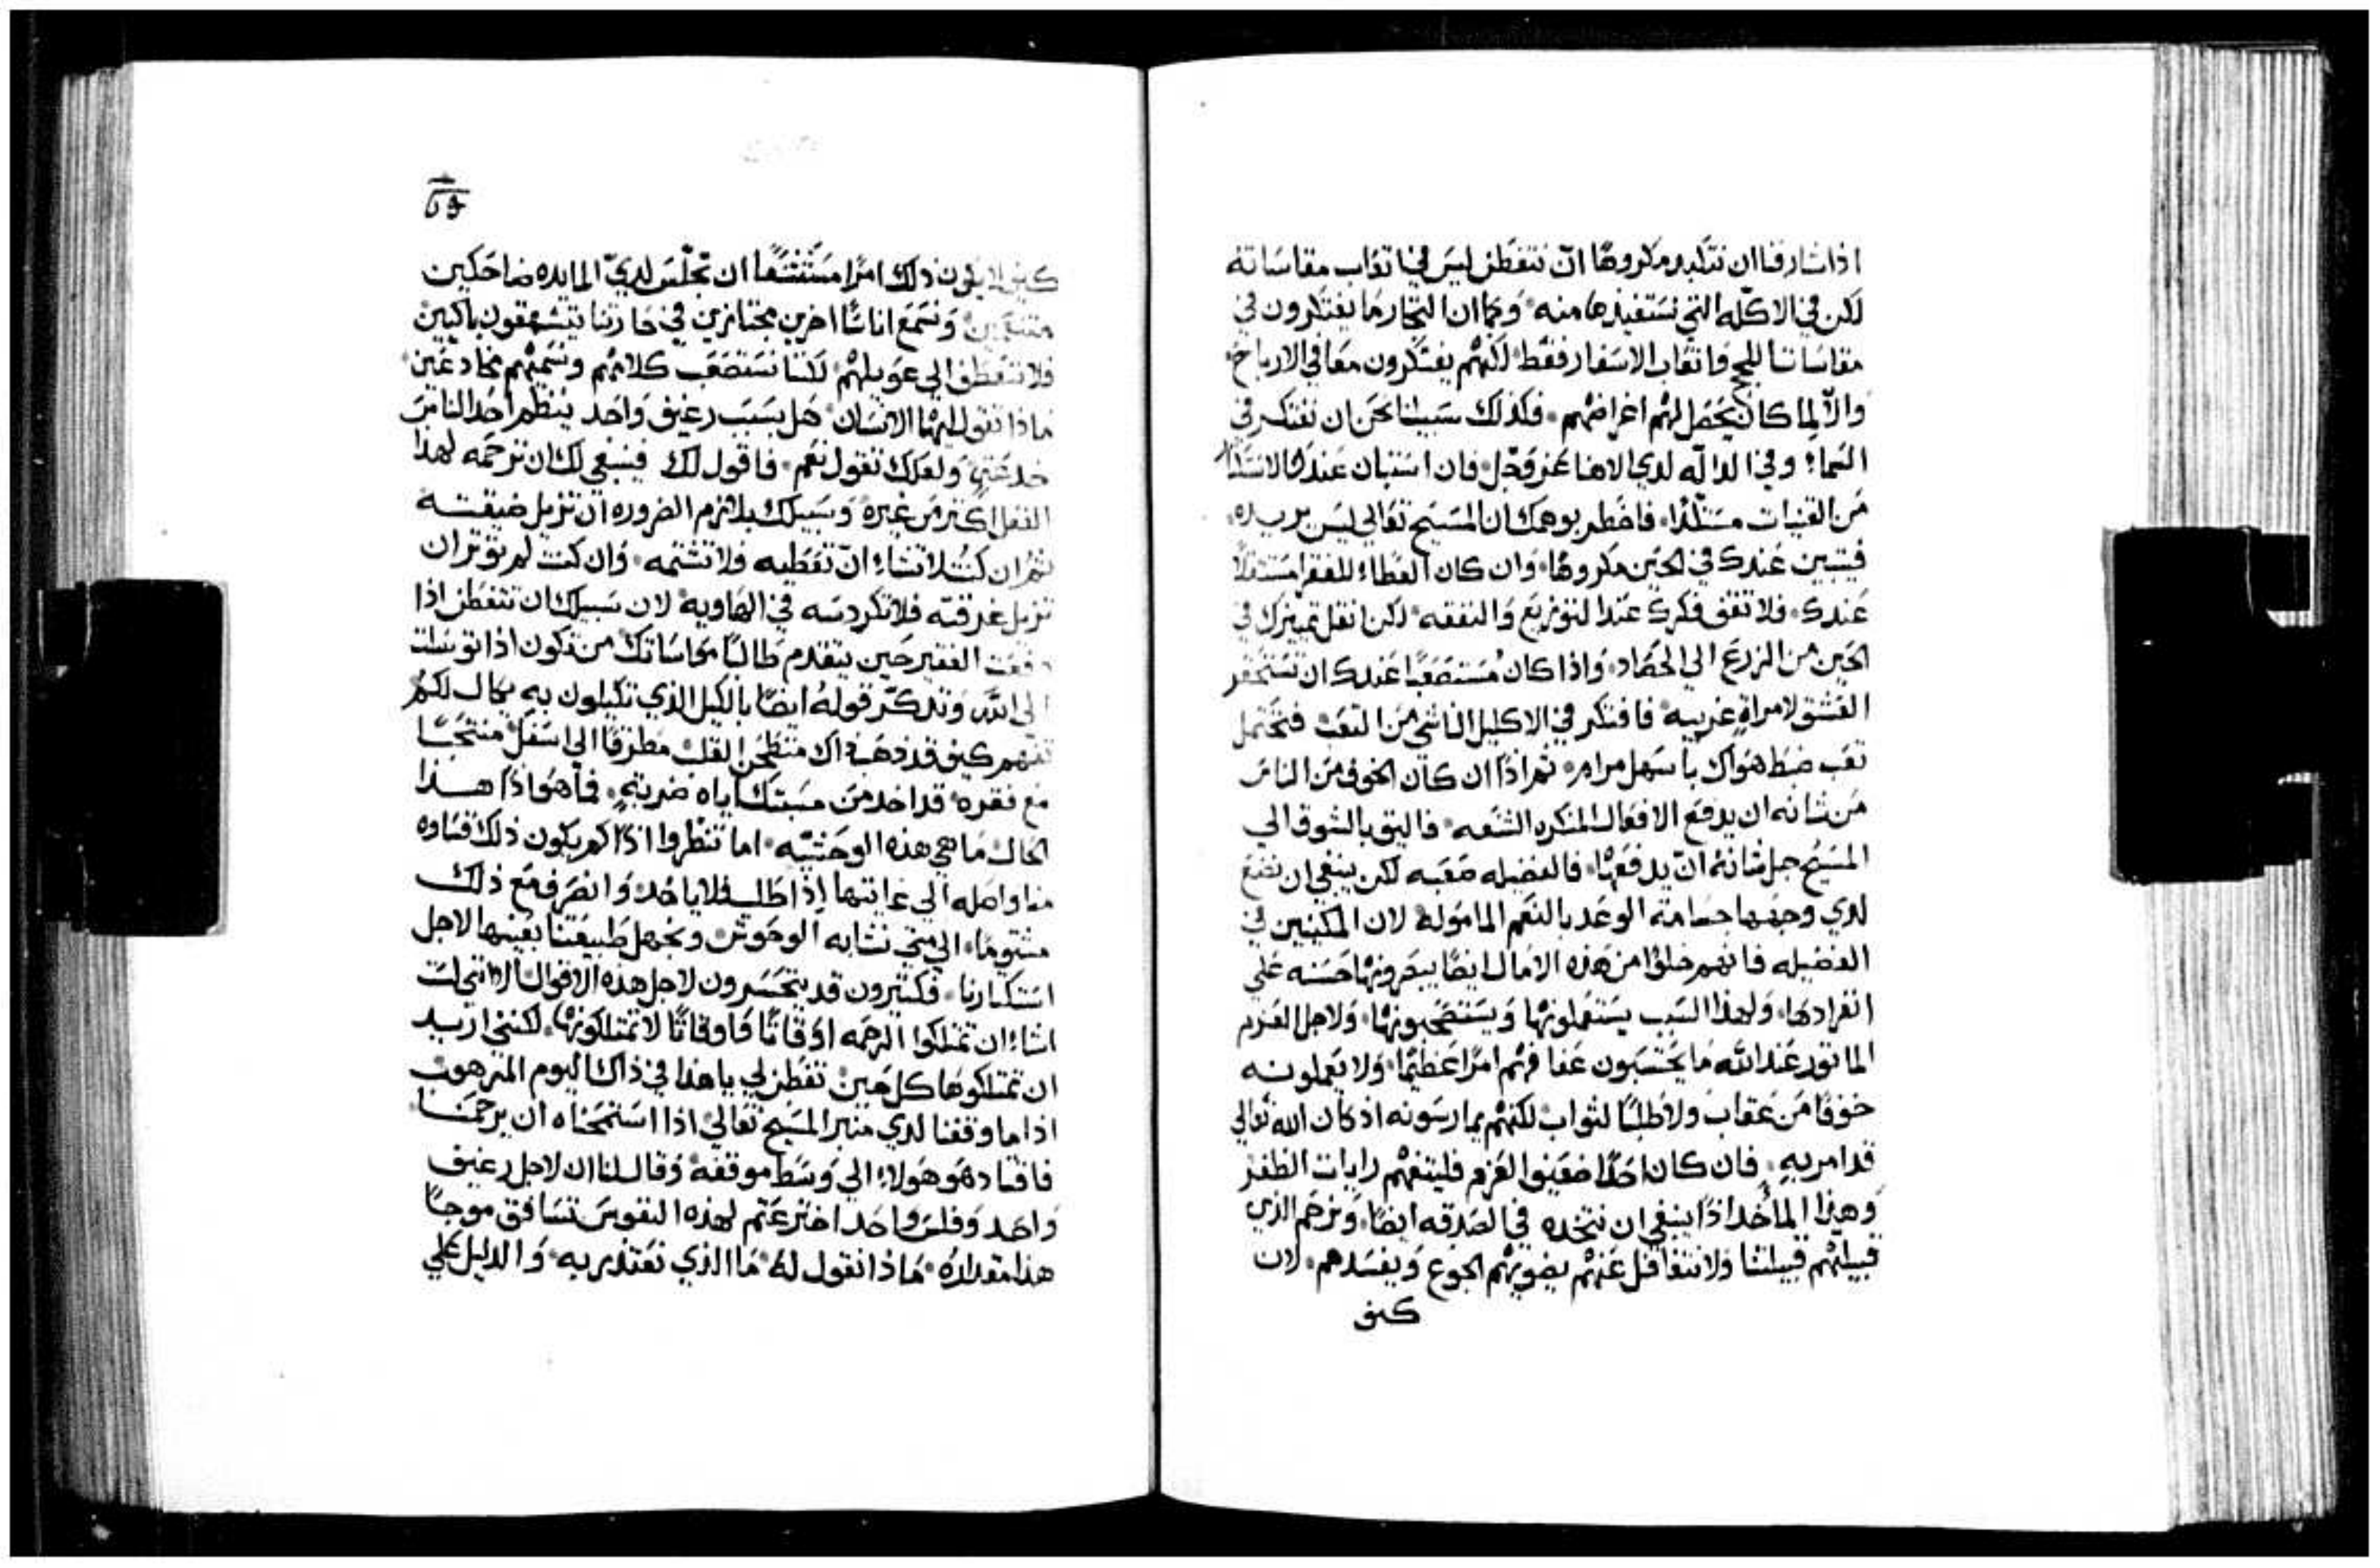 اذا شارفنا ان نتكبد مكروهًا ان نتفطن ليس في اتعاب مقاساته
لكن في الاكله التي نستفيدها منه وكما ان التجار ما يفتكرون في
مقاساتنا اللجج واتعاب الاسفار فقط لكنهم يفتكرون معًا في الارباح
والّا لما كان يحصل لهم اغراضهم فكذلك سبيلنا نحن ان نفتكر في
السماء وفي الداله لدي الاهنا عز وجل فان استبان عندك الاستلذاذ
من القنيات مستلذًا فاخطر بوهمك ان المسيح تعالي ليس يريده
فيتبين عندك في الحين مكروهًا وان كان العطاء للفقرا مستثقلًا
عندك فلا تقف فكرك عند التوزيع والنفقه لكن انقل تمييزك في
الحين من الزرع الي الحصاد واذا كان مستصعبًا عندك ان تستحقر
العشق لامراةٍ غريبه فافتكر في الاكليل الناشي من التعب فتحتمل
تعب ضبط هواك باسهل مرام ثم اذًا ان كان الخوف من الناس
من شانه ان يدفع الافعال المنكره الشنعه فاليق بالشوق الي
المسيح جل شانه ان يدفعها فالفضيله صعبه لكن ينبغي ان نضع
لدي وجهها جسامة الوعد بالنعم المامولة لان المكينين في
الفضيله فانهم خلوًا من هذه الامال ايضًا يبصرونها حسنه علي
انفرادها ولهذا السبب يستعملونها ويستصحبونها ولاجل العزم
الماثور عند الله ما يحتسبون عفافهم امرًا عظيمًا ولا يعملونه
خوفًا من عقاب ولا طلبًا لثواب لكنهم يمارسونه اذ كان الله تعالي
قد امر به فان كان احدًا ضعيف العزم فليتفهم رايات الظفر
وهذا الماخذ اذًا ينبغي ان نتخذه في الصدقه ايضًا ونرحم الذي
قبيلتهم قبيلتنا ولا نتغافل عنهم يضويهم الجوع ويفسدهم لان
كيف
كيف لا يكون ذلك امرًا مستشنعًا ان نجلس لدي المايده ضاحكين
متنعمين ونسمع اناسًا اخرين مجتازين في حارتنا يتشهقون باكيين
فلا نتعطف الي عويلهم لكننا نستصعب كلامهم ونسميهم مخادعين
ماذا تقول ايها الانسان هل بسبب رغيف واحد ينظم احد الناس
خدعتي ولعلك تقول نعم فاقول لك فينبغي لك ان ترحمه لهذا
الفعل اكثر من غيره وسبيلك بلازم الضروره ان تزيل ضيقته
ثم ان كنت لا تشاء ان تعطيه فلا تشتمه وان كنت لم توثر ان
تزيل غرقته فلا تكردسه في الهاويه لان سبيلك ان تتفطن اذا
دفعت الفقير حين يتقدم طالبًا مواساتك من تكون اذا توسلت
الي الله وتذكر قوله ايضًا بالكيل الذي تكيلون به يكال لكم
تفهم كيف قد ذهب ذاك منطحن القلب مطرقًا الي اسفل منتحبًا
مع فقره قد اخذ من مسبتك اياه ضربةٍ فما هو اذًا هذا
الحال ما هي هذه الوحشيه اما تنظروا اذا لم يكون ذلك قساوه
منا واصله الي غايتها اذا طلب فلا ياخذ وانصرف مع ذلك
مشتومًا الي متي نشابه الوحوش ونجهل طبيعتنا بعينها لاجل
استكبارنا فكثيرون قد يتحسرون لاجل هذه الاقوال الا انني لست
اشاء ان تمتلكوا الرحمه اوقاتًا واوقاتًا لا تمتلكونها لكنني اريد
ان تمتلكوها كل حين تفطن لي يا هذا في ذاك اليوم المرهوب
اذا ما وقفنا لدي منبر المسيح تعالي اذا استمحناه ان يرحمنا
فاقتاد هو هولاء الي وسط موقفه وقال لنا ان لاجل رغيف
واحد وفلس واحد اخترعتم لهذه النفوس تسافق موجبًا
هذا مقداره ماذا نقول له ما الذي نعتذر به والدليل علي